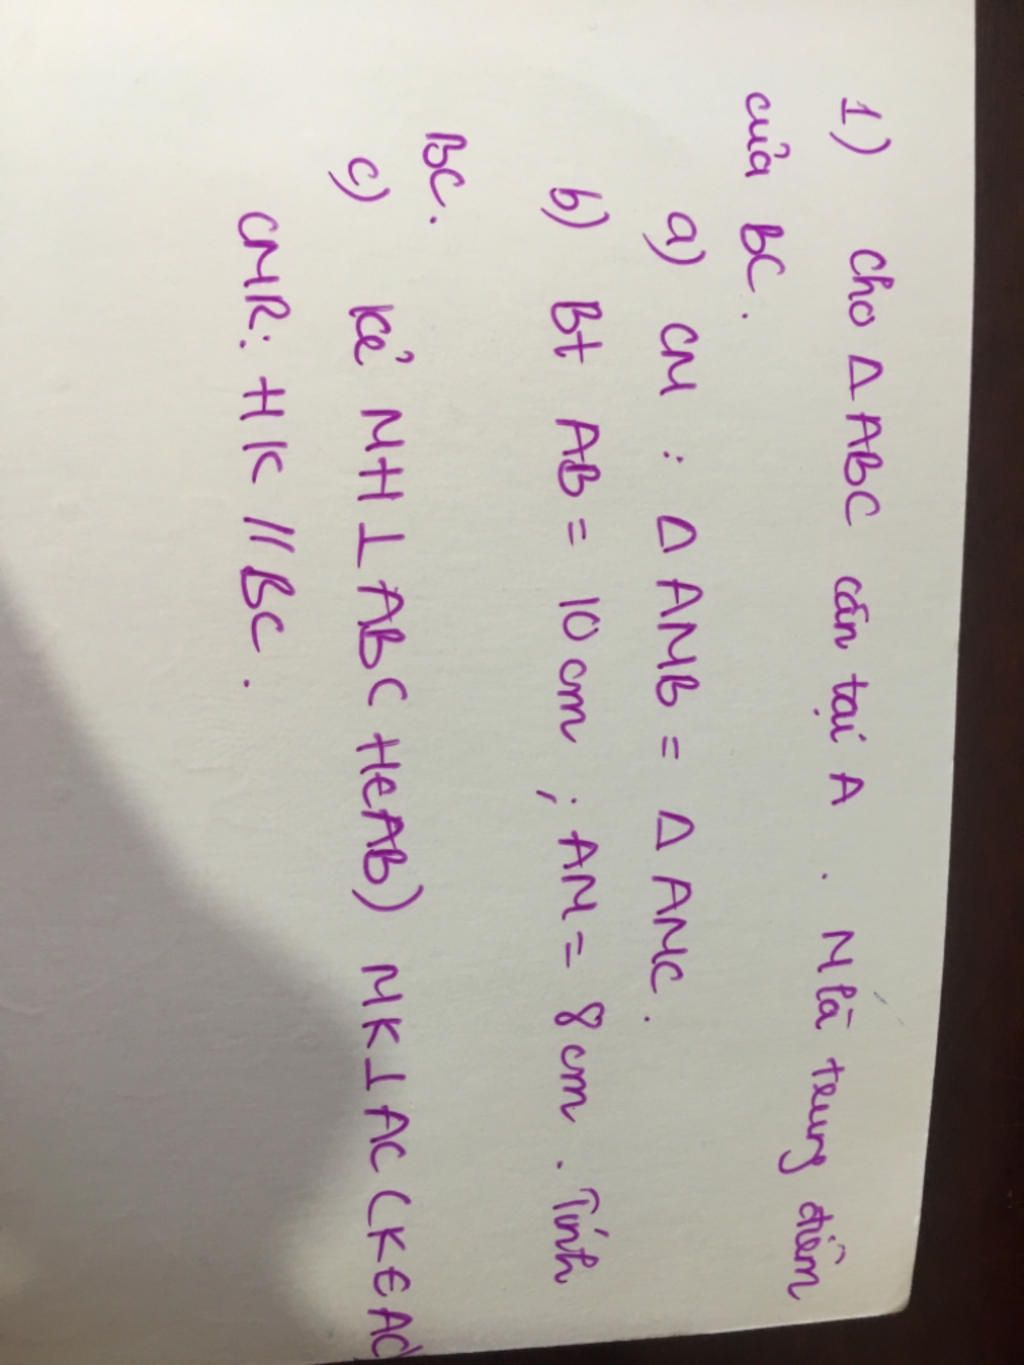 1) Cho Δ ABC cân tại A. M là trung điểm
của BC.
a) CM : Δ AMB = Δ AMC.
b) Bt AB = 10 cm ; AM = 8 cm. Tính
BC.
c) Kẻ MH ⊥ AB ( H ∈ AB) MK ⊥ AC ( K ∈ AC
CMR: HK // BC.